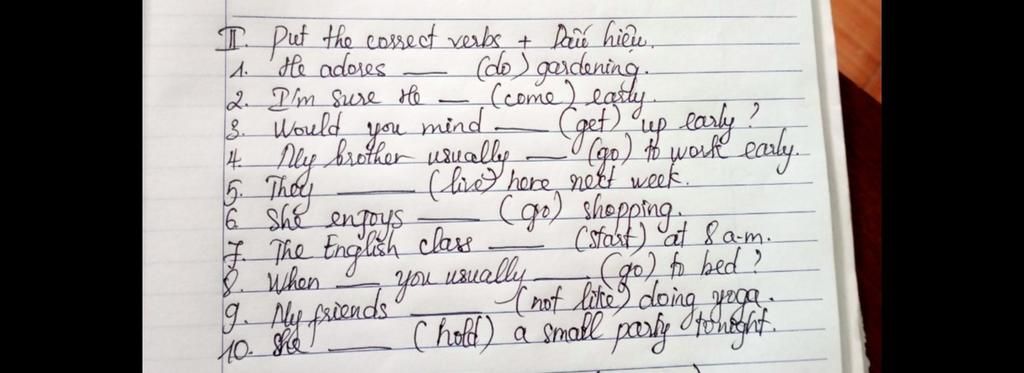 II. Put the correct verbs + Dấu hiệu.
1. He adores ___ (do) gardening.
2. I'm sure He ___ (come) early.
3. Would you mind ___ (get) up early?
4. My brother usually ___ (go) to work early.
5. They ___ (live) here next week.
6. She enjoys ___ (go) shopping.
7. The English class ___ (start) at 8 a.m.
8. When ___ you usually ___ (go) to bed?
9. My friends ___ (not like) doing yoga.
10. She ___ (hold) a small party tonight.